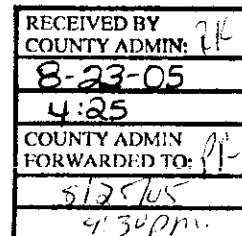 RECEIVED BY
COUNTY ADMIN:
8-23-05
4:25
COUNTY ADMIN
FORWARDED TO:
8/25/05
4:30pm.